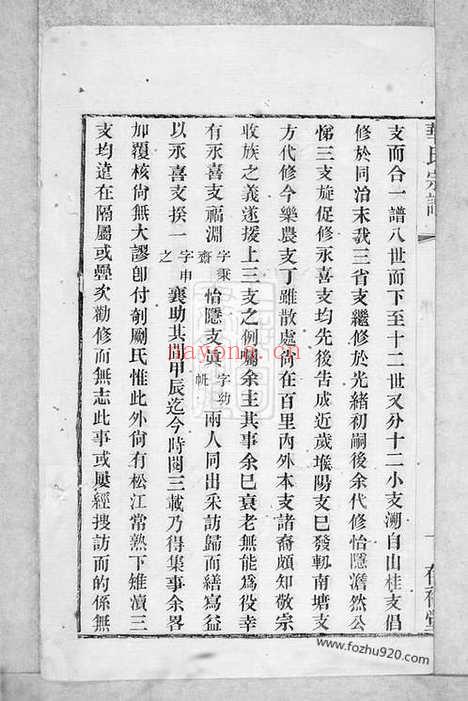 華氏宗譜
支而合一譜八世而下至十二世又分十二小支溯自山桂支倡
修於同治末我三省支繼修於光緒初嗣後余代修怡隱澹然公
悌三支旋促修永喜支均先後告成近歲堠陽支巳發軔南塘支
方代修今樂農支丁雖散處尚在百里內外本支諸裔頗知敬宗
收族之義遂援上三支之例囑余主其事余巳衰老無能為役幸
有永喜支福淵字秉齋怡隱支寅字幼帆兩人同出采訪歸而繕寫益
以永喜支揆一字申之襄助其間甲辰迄今時閱三載乃得集事余畧
加覆核尙無大謬卽付剞劂氏惟此外尙有松江常熟下雉瀆三
支均遠在隔屬或疊次勸修而無志此事或屢經搜訪而的係無
nayong.cn
www.fozhu920.com